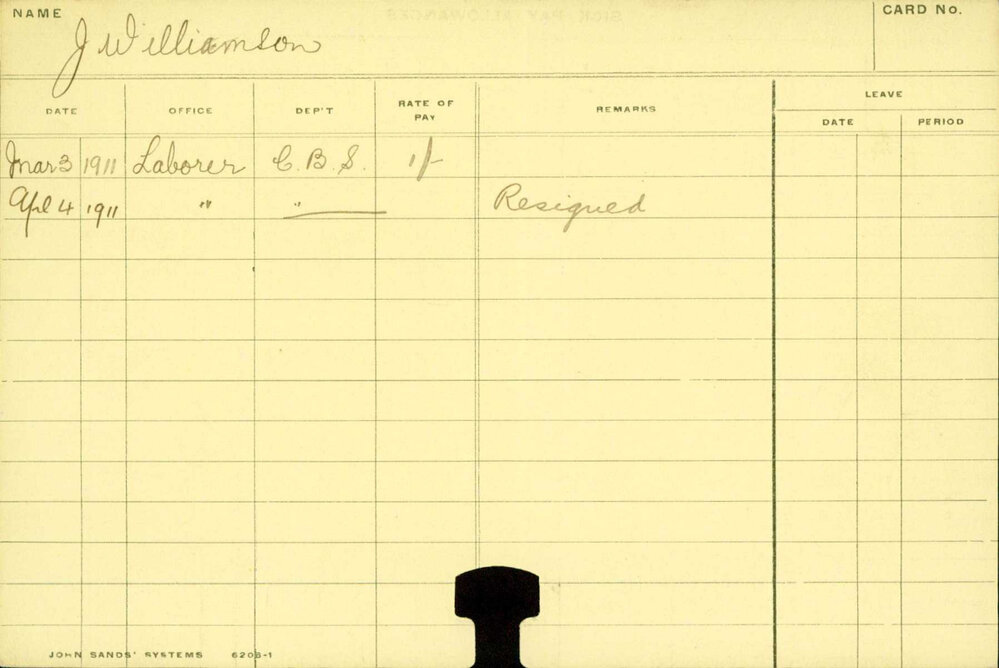 NAME
J Williamson
CARD No.
DATE OFFICE DEP'T RATE OF PAY REMARKS LEAVE
DATE PERIOD
Mar 3 1911 Laborer C. B. S. 1/-
Apl 4 1911 " " Resigned
JOHN SANDS' SYSTEMS 6206-1